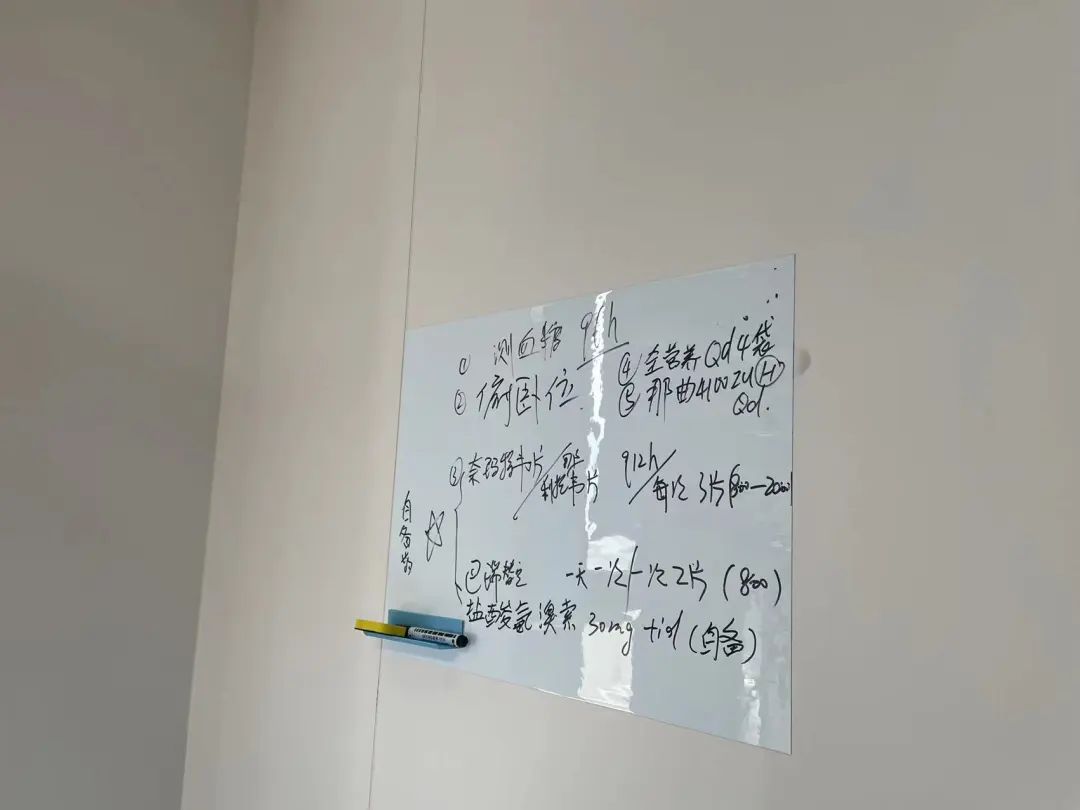 ① 测血糖 q4h
② 俯卧位
④ 全营养 Qd 4袋
⑤ 那曲4100ZU H Qd.
自备药 ☆
③ 奈玛特韦片/利托韦片 q12h/每次3片(800—2000)
巴瑞替尼 一天一次/一次2片(800)
盐酸氨溴索 30mg tid (自备)